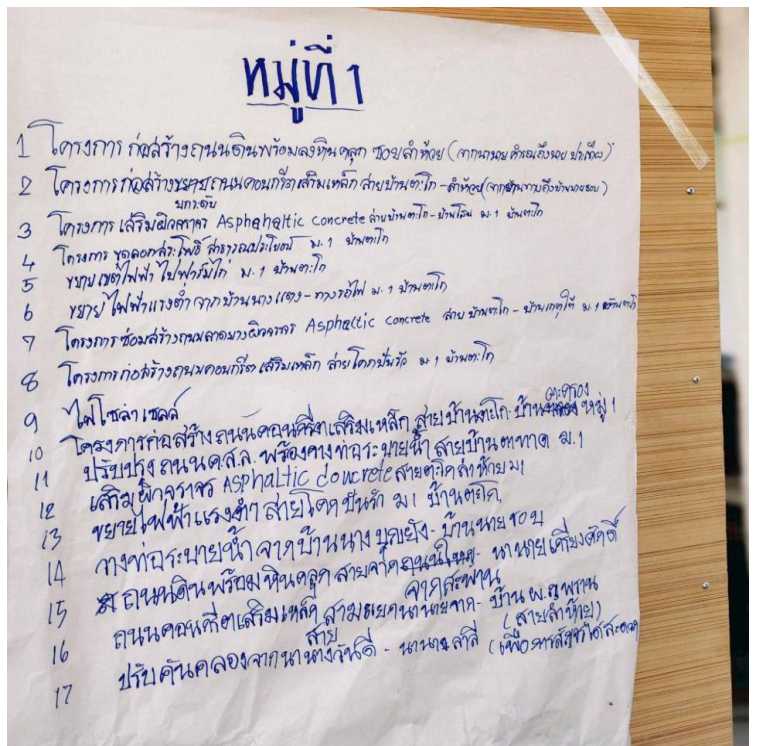 หมู่ที่ 1
1 โครงการ ก่อสร้างถนนดินพร้อมลงหินคลุก ซอยลำห้วย (จากนานาย ถึงนาย
2 โครงการก่อสร้างขยายถนนคอนกรีตเสริมเหล็ก สายบ้านตะโก-ลำห้วย(จากบ้าน ถึงบ้านนายชอบ)
ยกระดับ
3 โครงการ เสริมผิวจราจร Asphaltic concrete สายบ้านตะโก-บ้านโสน ม.1 บ้านตะโก
4 โครงการ ขุดลอกสระโพธิ์ สาธารณประโยชน์ ม.1 บ้านตะโก
5 ขยายเขตไฟฟ้า ไปฟาร์มไก่ ม.1 บ้านตะโก
6 ขยายไฟฟ้าแรงต่ำ จากบ้านนางแตง-ทางรถไฟ ม.1 บ้านตะโก
7 โครงการซ่อมสร้างถนนลาดยางผิวจราจร Asphaltic concrete สาย บ้านตะโก - ม.1 บ้านตะโก
8 โครงการก่อสร้างถนนคอนกรีตเสริมเหล็ก สายโคกปันรัว ม.1 บ้านตะโก
9 ไฟโซล่าเซลล์
10 โครงการก่อสร้างถนนคอนกรีตเสริมเหล็ก สายบ้านตะโก-บ้าน หมู่ 1
11 ปรับปรุงถนนค.ส.ล. พร้องวางท่อระบายน้ำ สายบ้านตาทาด ม.1
12 เสริมผิวจราจร Asphaltic concrete สายตะโก ลำห้วย ม1
13 ขยายไฟฟ้าแรงต่ำ สายโคกปันรัว ม1 บ้านตะโก
14 วางท่อระบายน้ำ จากบ้านนางบุญยัง-บ้านนายชอบ
15 ถนนดินพร้อมหินคลุก สายจากถนนใหญ่-นานายเกรียงศักดิ์
จากสะพาน
16 ถนนคอนกรีตเสริมเหล็ก สามแยกนานายจาก-บ้าน (สายลำห้วย)
สาย
17 ปรับคันคลองจากนานางวันดี - นานายสาลี่ (เพื่อการสัญจรได้สะดวก